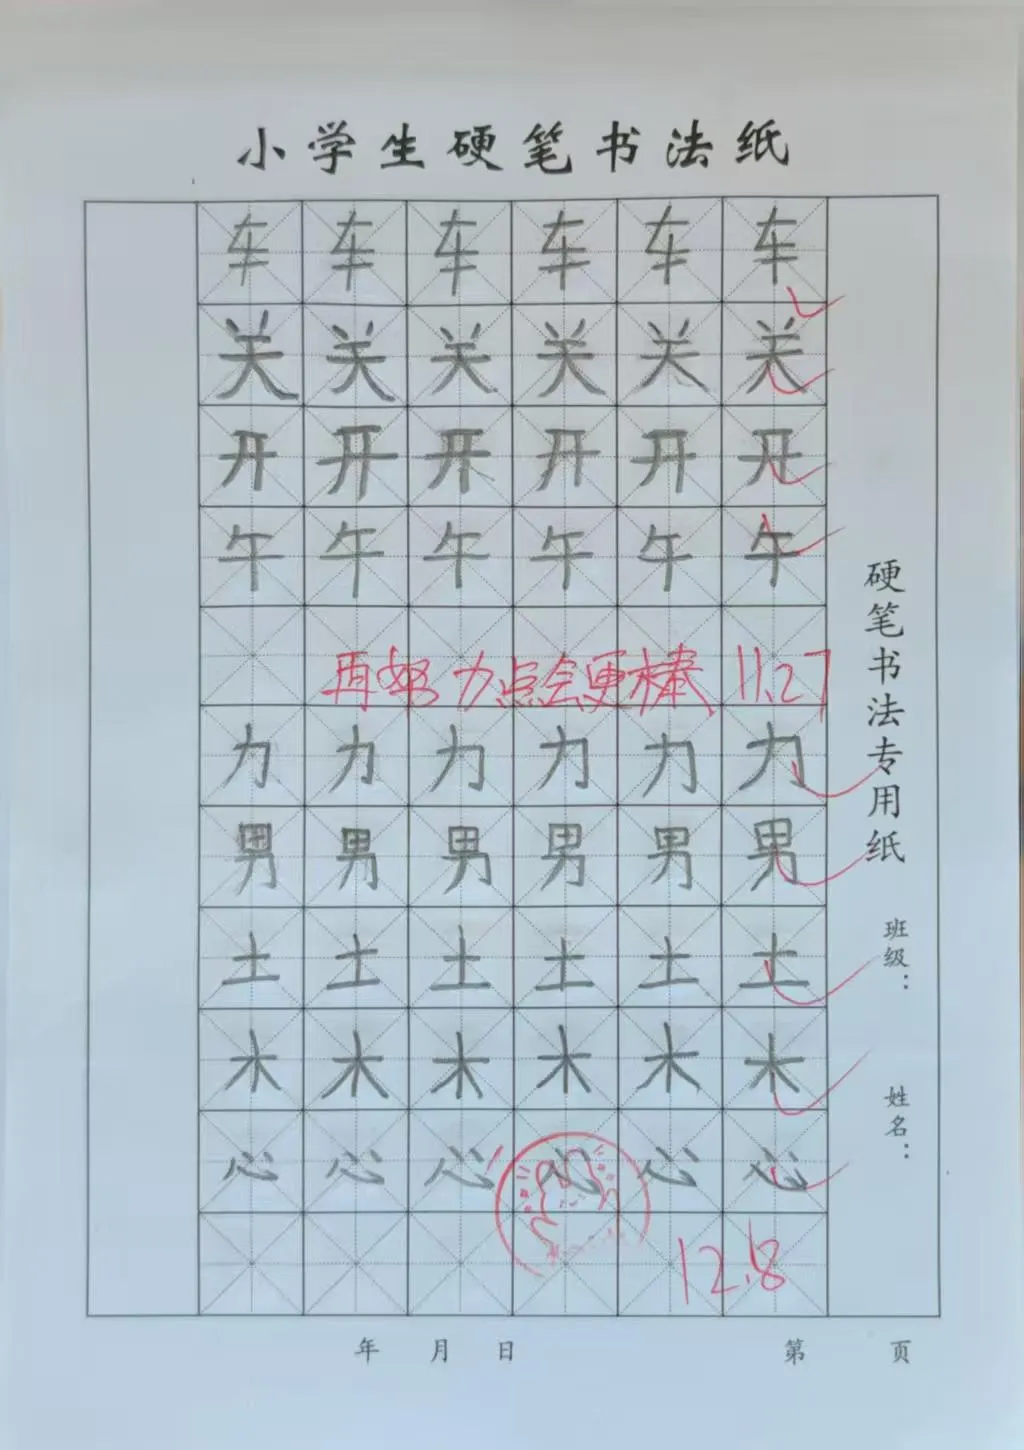 小学生硬笔书法纸
车车车车车车
关关关关关关
开开开开开开
午午午午午午
再努力点会更棒 11.27
力力力力力力
男男男男男男
土土土土土土
木木木木木木
心心心心心心
12.8
硬笔书法专用纸
班级：
姓名：
年 月 日
第 页